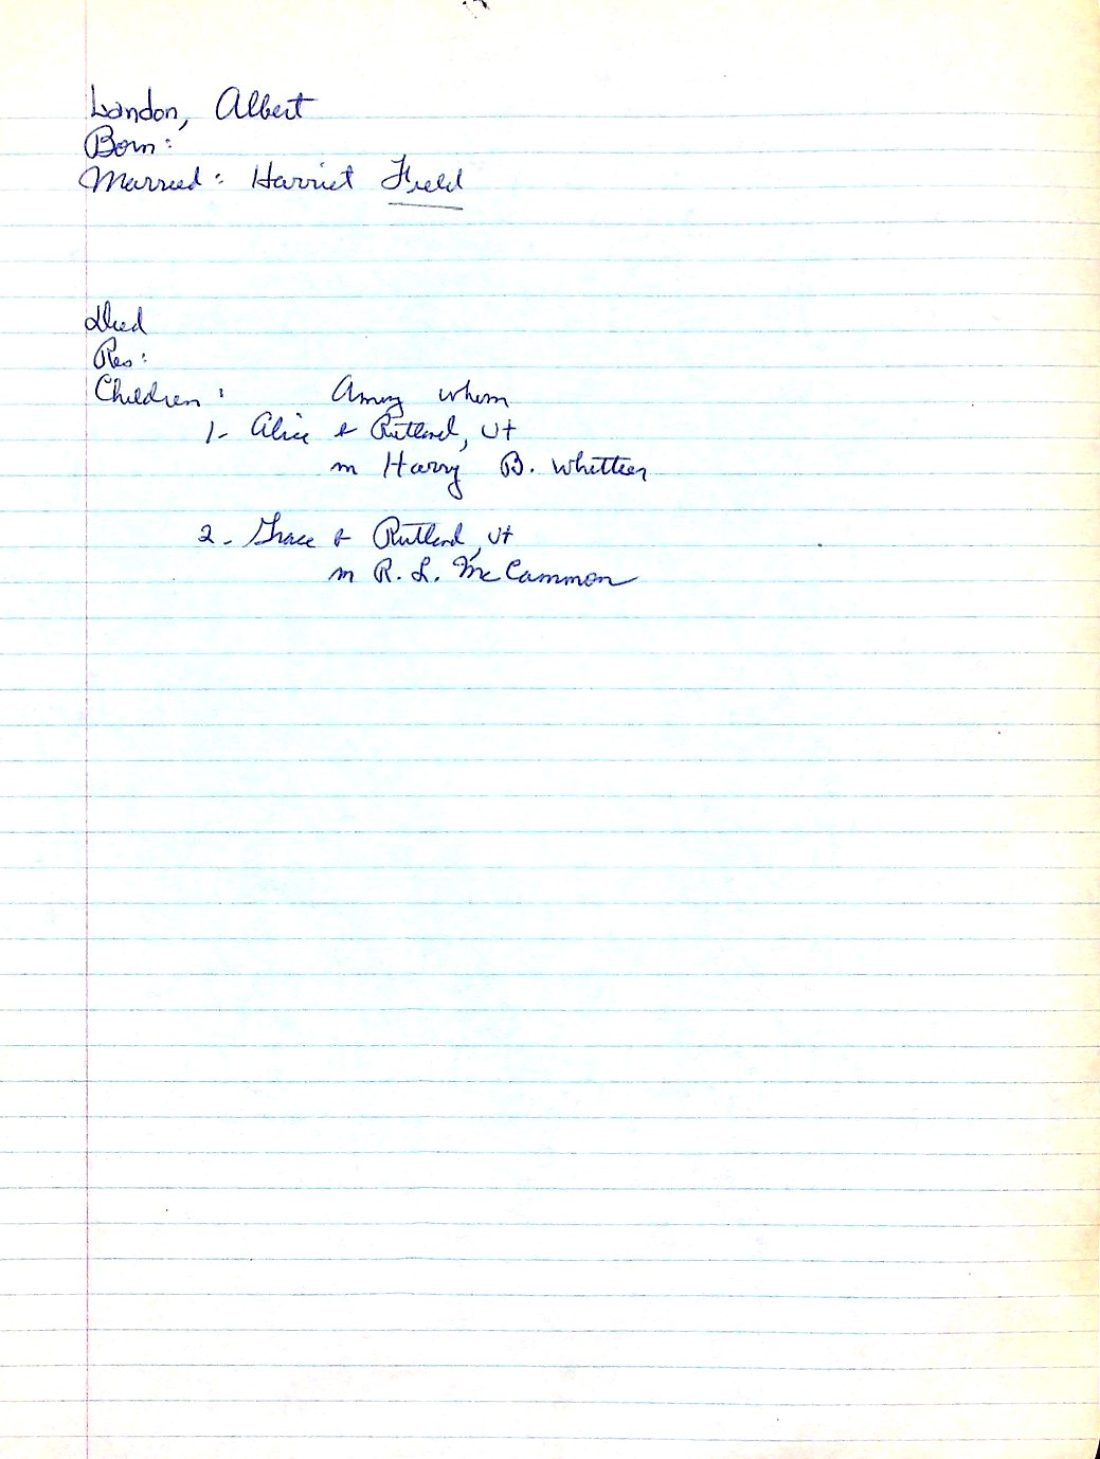 Landon, Albert
Born:
Married: Harriet Field
Died
Res:
Children: Among whom
1- Alice b Rutland, Vt
m Harry B. Whittier
2- Grace b Rutland, Vt
m R. L. McCammon